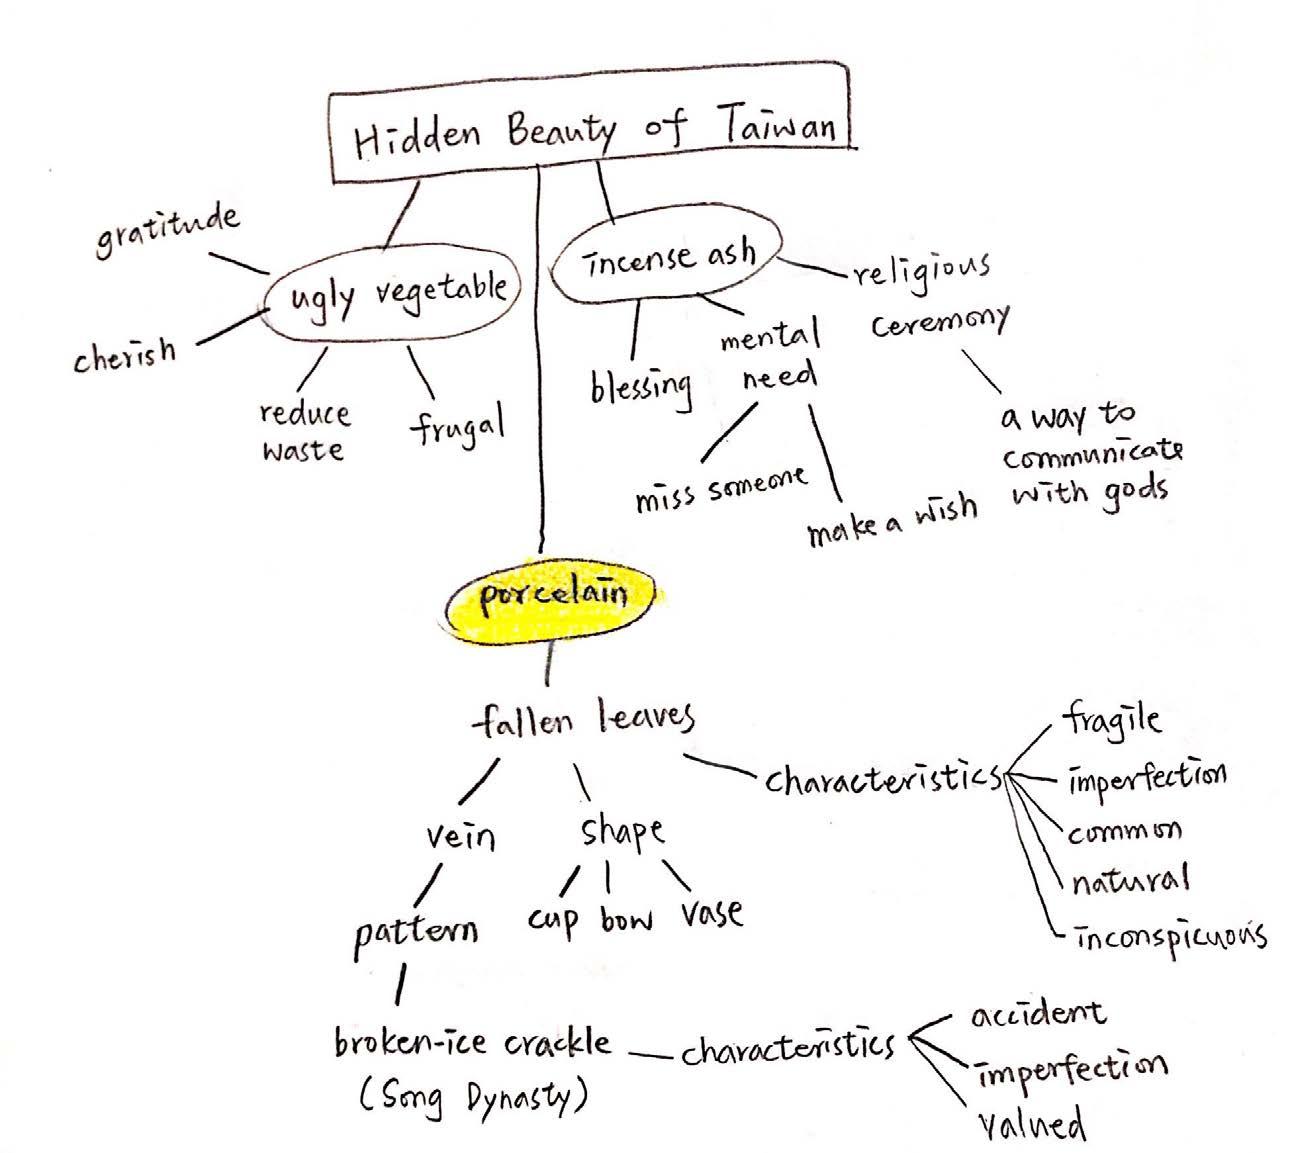 Hidden Beauty of Taiwan
gratitude
ugly vegetable
cherish
reduce
waste
frugal
incense ash
blessing
mental
need
miss someone
make a wish
religious
ceremony
a way to
communicate
with gods
porcelain
fallen leaves
vein
pattern
broken-ice crackle
(Song Dynasty)
shape
cup bow vase
characteristics
fragile
imperfection
common
natural
inconspicuous
characteristics
accident
imperfection
valued